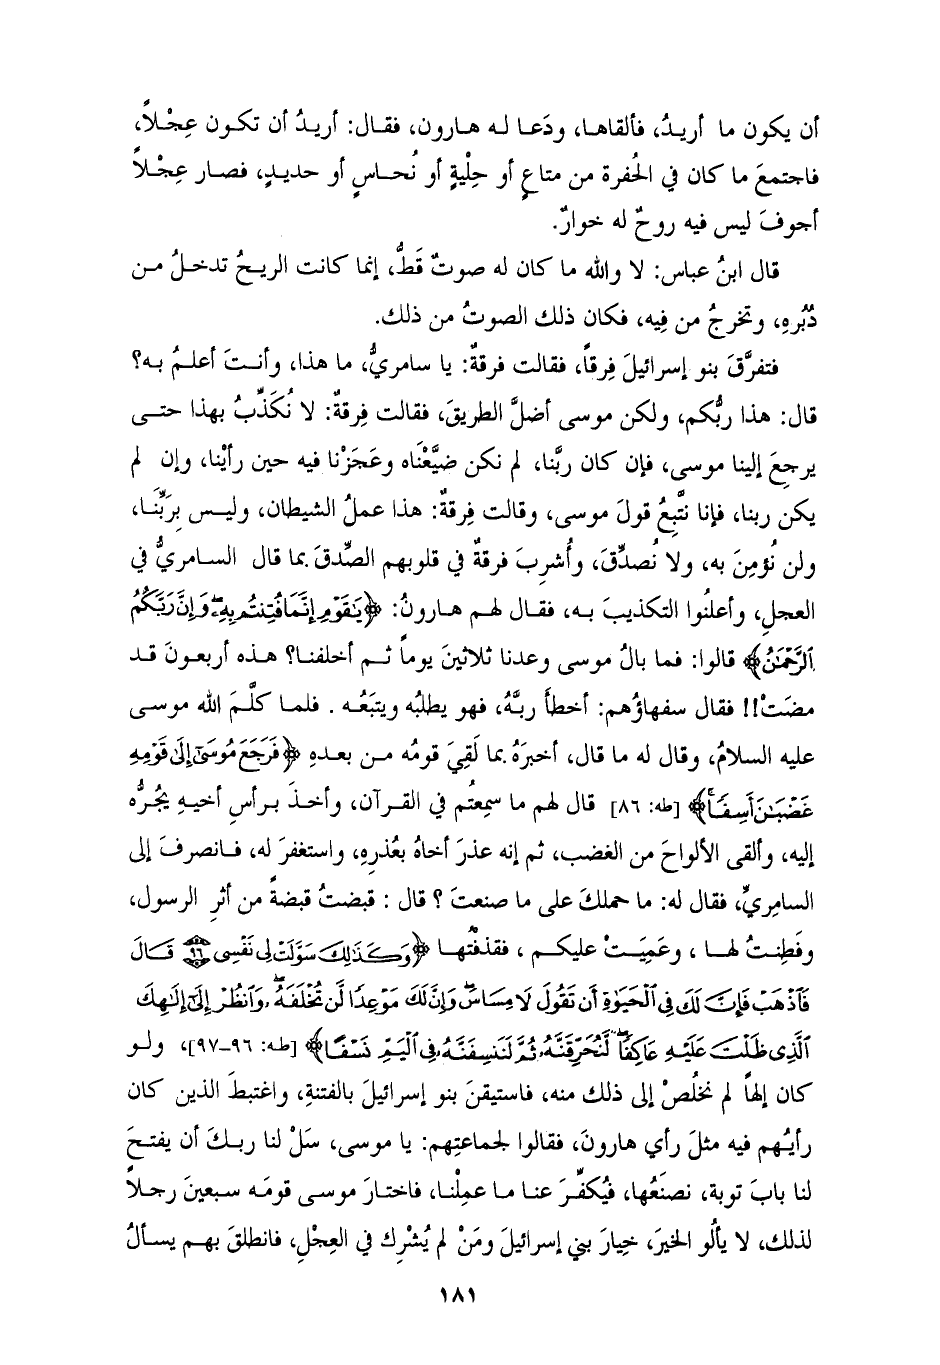 أن يكون ما أريدُ، فألقاها، ودَعا له هارون، فقال: أريدُ أن تكون عِجْلاً،
فاجتمعَ ما كان في الحُفرة من متاعٍ أو حِلْيةٍ أو نُحاسٍ أو حديدٍ، فصار عِجْلاً
أجوفَ ليس فيه روحٌ له خوارٌ.
قال ابنُ عباس: لا والله ما كان له صوتٌ قَطُّ، إنما كانت الريحُ تدخلُ من
دُبُرهِ، وتخرجُ من فِيه، فكان ذلك الصوتُ من ذلك.
فتفرَّقَ بنو إسرائيلَ فِرقاً، فقالت فرقةٌ: يا سامريُّ، ما هذا، وأنتَ أعلمُ به؟
قال: هذا ربُّكم، ولكن موسى أضلَّ الطريقَ، فقالت فِرقةٌ: لا نُكَذِّبُ بهذا حتى
يرجِعَ إلينا موسى، فإن كان ربَّنا، لم نكن ضيَّعْنَاه وعَجَزْنا فيه حين رأيْنا، وإن لم
يكن ربنا، فإنا نتَّبِعُ قولَ موسى، وقالت فِرقةٌ: هذا عملُ الشيطان، وليس بِرَبِّنَا،
ولن نُؤمِنَ به، ولا نُصدِّقَ، وأُشرِبَ فرقةٌ في قلوبهم الصِّدقَ بما قال السامريُّ في
العجلِ، وأعلنُوا التكذيبَ به، فقال لهم هارونُ: ﴿يَٰقَوْمِ إِنَّمَا فُتِنتُم بِهِۦ وَإِنَّ رَبَّكُمُ
ٱلرَّحْمَٰنُ﴾ قالوا: فما بالُ موسى وعدنا ثلاثينَ يوماً ثم أخلفنا؟ هذه أربعونَ قد
مضَتْ!! فقال سفهاؤُهم: أخطأَ ربَّهُ، فهو يطلبُه ويتبَعُه . فلما كلَّمَ الله موسى
عليه السلامُ، وقال له ما قال، أخبرَهُ بما لَقِيَ قومُه من بعدهِ ﴿فَرَجَعَ مُوسَىٰٓ إِلَىٰ قَوْمِهِۦ
غَضْبَٰنَ أَسِفًا﴾ [طه: ٨٦] قال لهم ما سمِعتُم في القرآن، وأخذَ برأسِ أخيهِ يجُرُّه
إليه، وألقى الألواحَ من الغضب، ثم إنه عذرَ أخاهُ بعُذرِهِ، واستغفرَ له، فانصرفَ إلى
السامِريِّ، فقال له: ما حملكَ على ما صنعتَ ؟ قال : قبضتُ قبضةً من أثرِ الرسول،
وفَطِنتُ لها ، وعمِيَتْ عليكم ، فقذفْتُها ﴿وَكَذَٰلِكَ سَوَّلَتْ لِى نَفْسِى ٩٦ قَالَ
فَٱذْهَبْ فَإِنَّ لَكَ فِى ٱلْحَيَوٰةِ أَن تَقُولَ لَا مِسَاسَ ۖ وَإِنَّ لَكَ مَوْعِدًا لَّن تُخْلَفَهُۥ ۖ وَٱنظُرْ إِلَىٰٓ إِلَٰهِكَ
ٱلَّذِى ظَلْتَ عَلَيْهِ عَاكِفًا ۖ لَّنُحَرِّقَنَّهُۥ ثُمَّ لَنَنسِفَنَّهُۥ فِى ٱلْيَمِّ نَسْفًا﴾ [طه: ٩٦-٩٧]، ولو
كان إلهاً لم نخلُصْ إلى ذلك منه، فاستيقنَ بنو إسرائيلَ بالفتنةِ، واغتبطَ الذين كان
رأيُهم فيه مثلَ رأي هارونَ، فقالوا لجماعتِهم: يا موسى، سَلْ لنا ربكَ أن يفتحَ
لنا بابَ توبة، نصنَعُها، فيُكفِّرَ عنا ما عمِلْنا، فاختارَ موسى قومَه سبعينَ رجلاً
لذلك، لا يألُو الخيرَ، خِيارَ بني إسرائيلَ ومَنْ لم يُشْرِك في العِجْلِ، فانطلقَ بهم يسألُ
١٨١